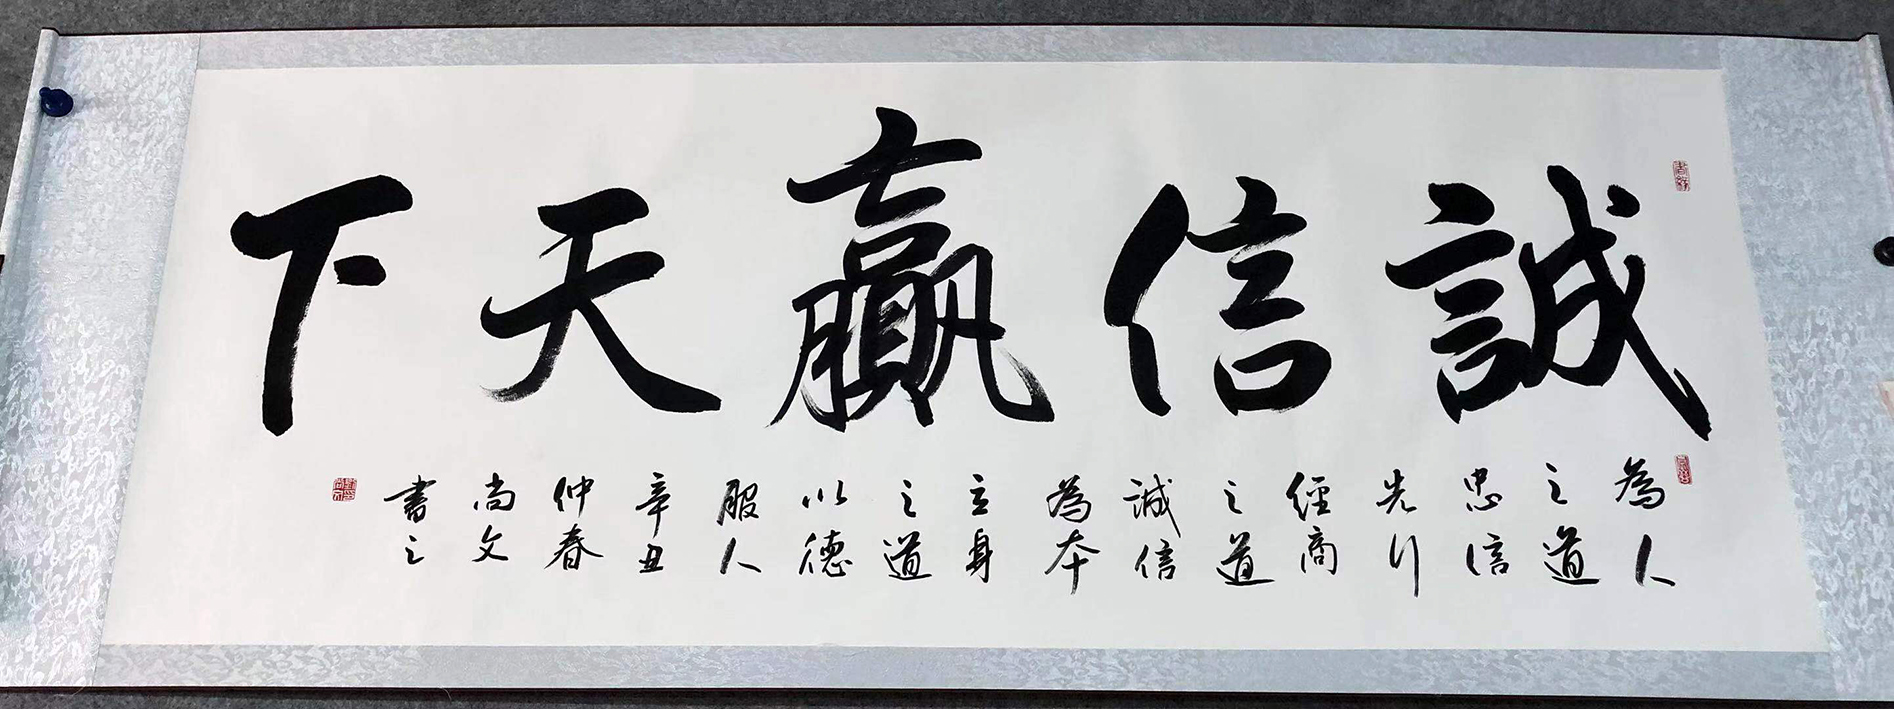 誠信贏天下
為人
之道
忠信
先行
經商
之道
誠信
為本
立身
之道
以德
服人
辛丑
仲春
尚文
書之